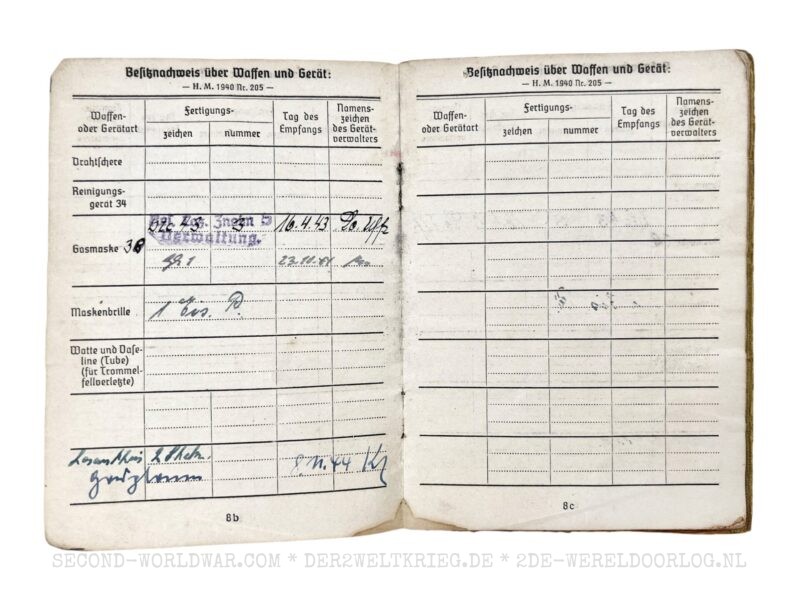 Besitznachweis über Waffen und Gerät:
— H. M. 1940 Nr. 205 —
Waffen- oder Gerätart
Fertigungs-
zeichen
nummer
Tag des Empfangs
Namens-
zeichen
des Gerät-
verwalters
Drahtschere
Reinigungs-
gerät 34
Verwaltung.
16.4.43
Gasmaske 38
Maskenbrille
1
Watte und Vase-
line (Tube)
(für Trommel-
fellverletzte)
8.11.44
8b
Besitznachweis über Waffen und Gerät:
— H. M. 1940 Nr. 205 —
Waffen-
oder Gerätart
Fertigungs-
zeichen
nummer
Tag des
Empfangs
Namens-
zeichen
des Gerät-
verwalters
8c
SECOND-WORLDWAR.COM * DER2WELTKRIEG.DE * 2DE-WERELDOORLOG.NL